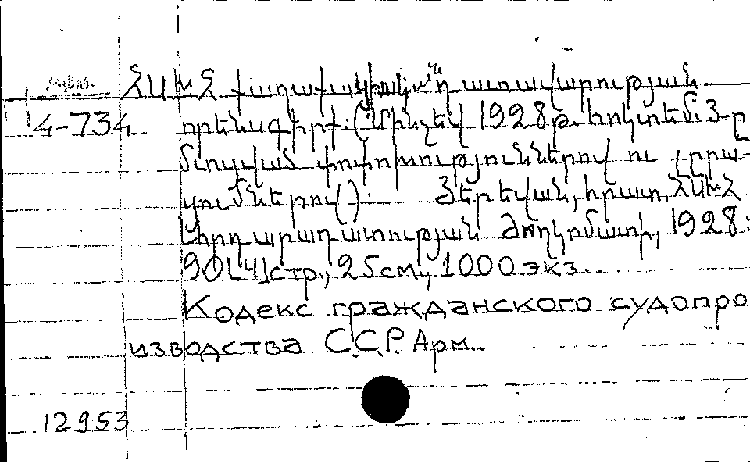 ՀԱԽՀ քաղաքացիական դատավարության
4-734 որենսգիրք: (Մինչեվ 1928 թ. հոկտեմ. 3-ը
մտցված փոփոխություններով ու լրա-
ցումներով): Յերեվան, հրատ. ՀԱԽՀ
Արդարադատության Ժողկոմատի, 1928.
90[4]стр., 25см., 1000 экз.
Кодекс гражданского судопро
изводства С.С.Р. Арм.
12953